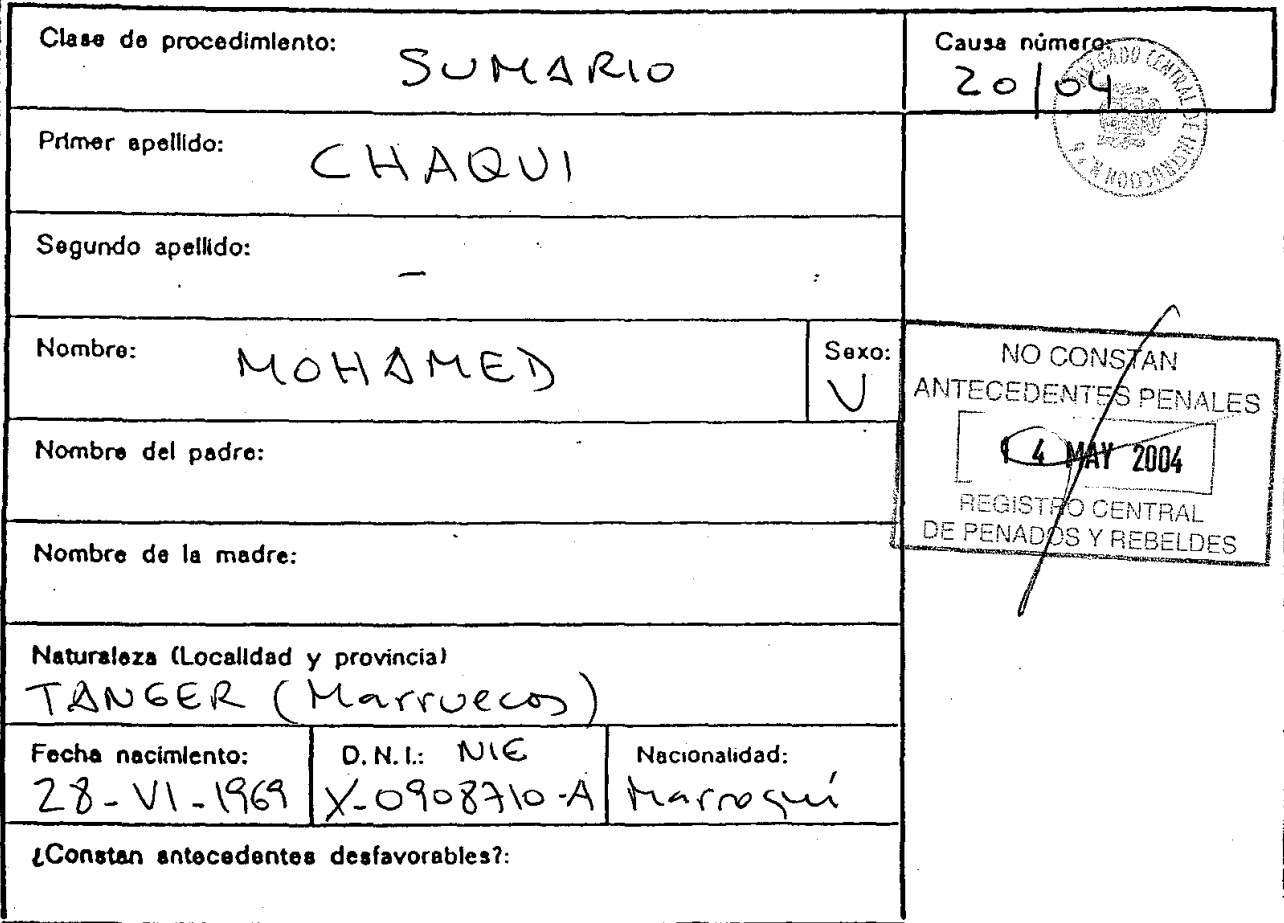 Clase de procedimiento:
SUMARIO
Causa número:
20/04
JUZGADO CENTRAL DE INSTRUCCION N.
Primer apellido:
CHAQUI
Segundo apellido:
—
Nombre:
MOHAMED
Sexo:
V
NO CONSTAN
ANTECEDENTES PENALES
14 MAY 2004
REGISTRO CENTRAL
DE PENADOS Y REBELDES
Nombre del padre:
Nombre de la madre:
Naturaleza (Localidad y provincia)
TANGER (Marruecos)
Fecha nacimiento:
28-VI-1969
D.N.I.: NIE
X-0908710-A
Nacionalidad:
Marroquí
¿Constan antecedentes desfavorables?: